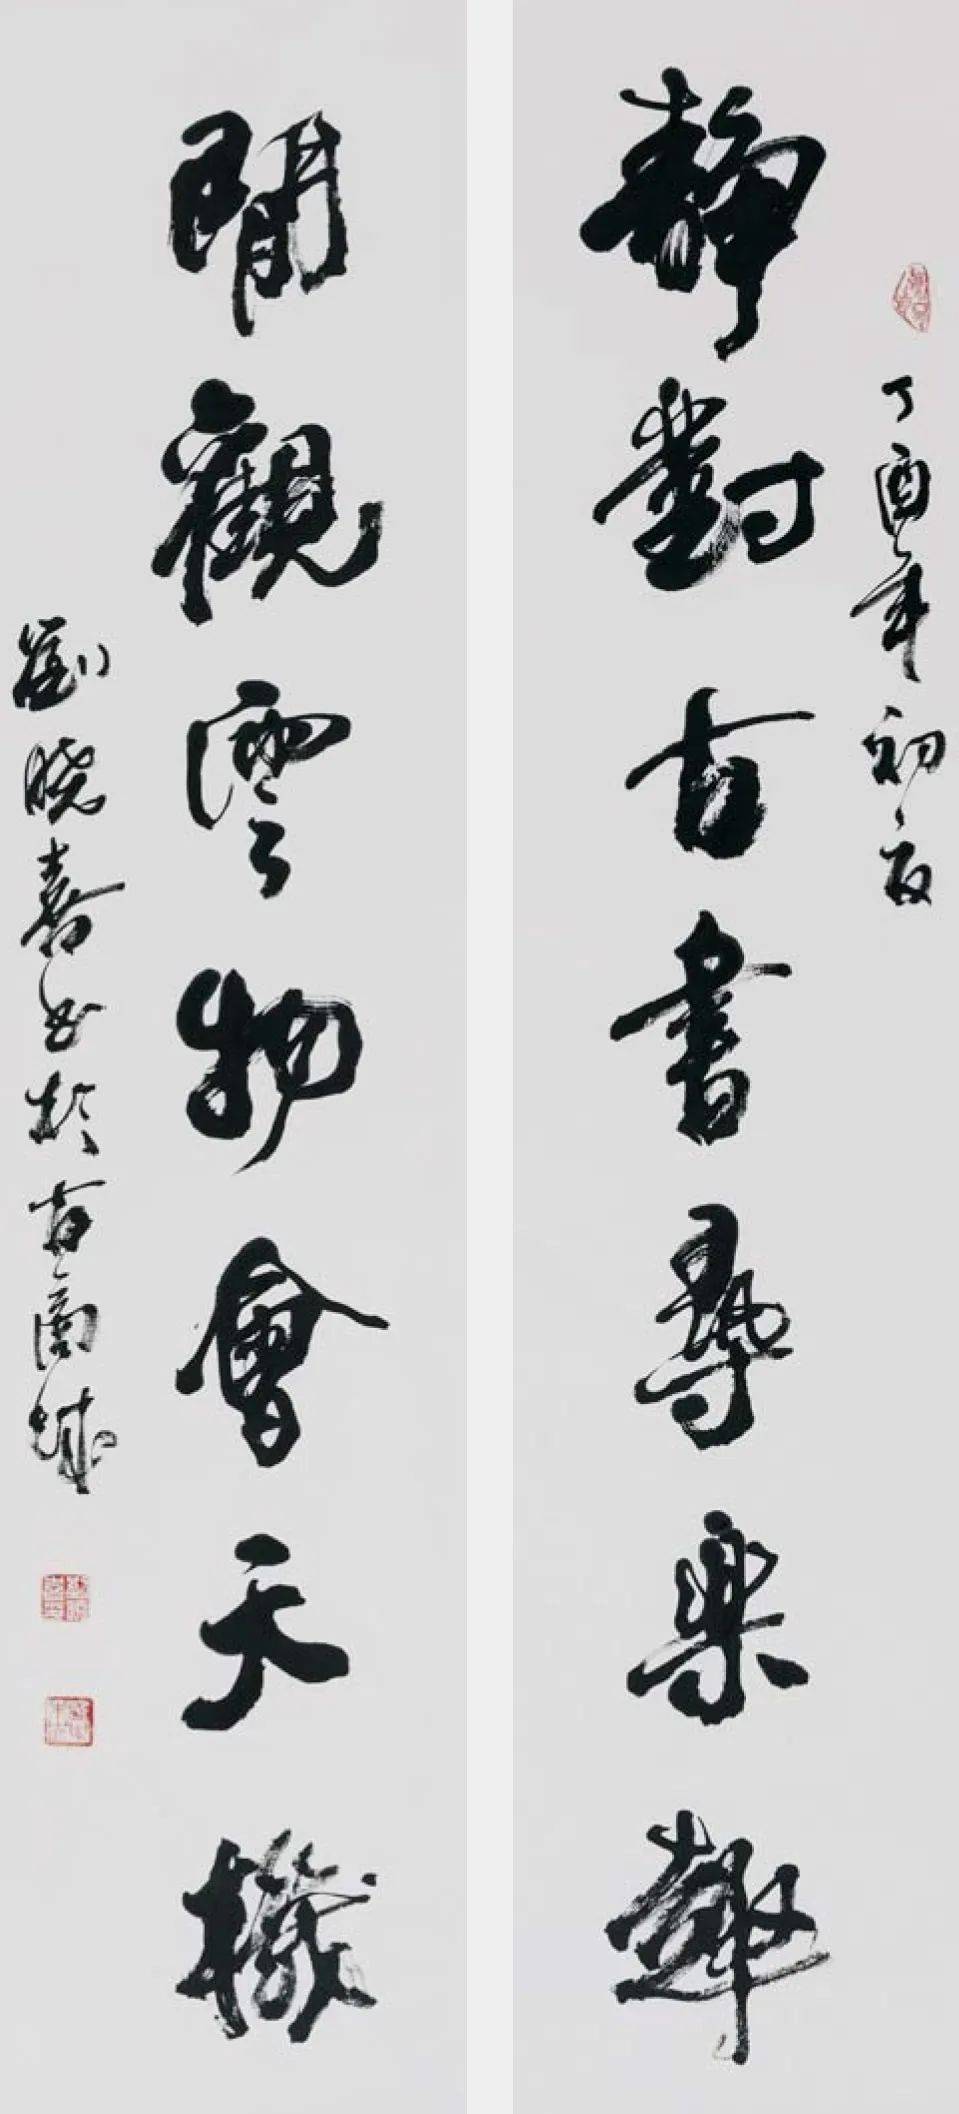 丁酉年初夏
靜對古書尋樂趣
閒觀雲物會天機
劉曉喜書於古商城